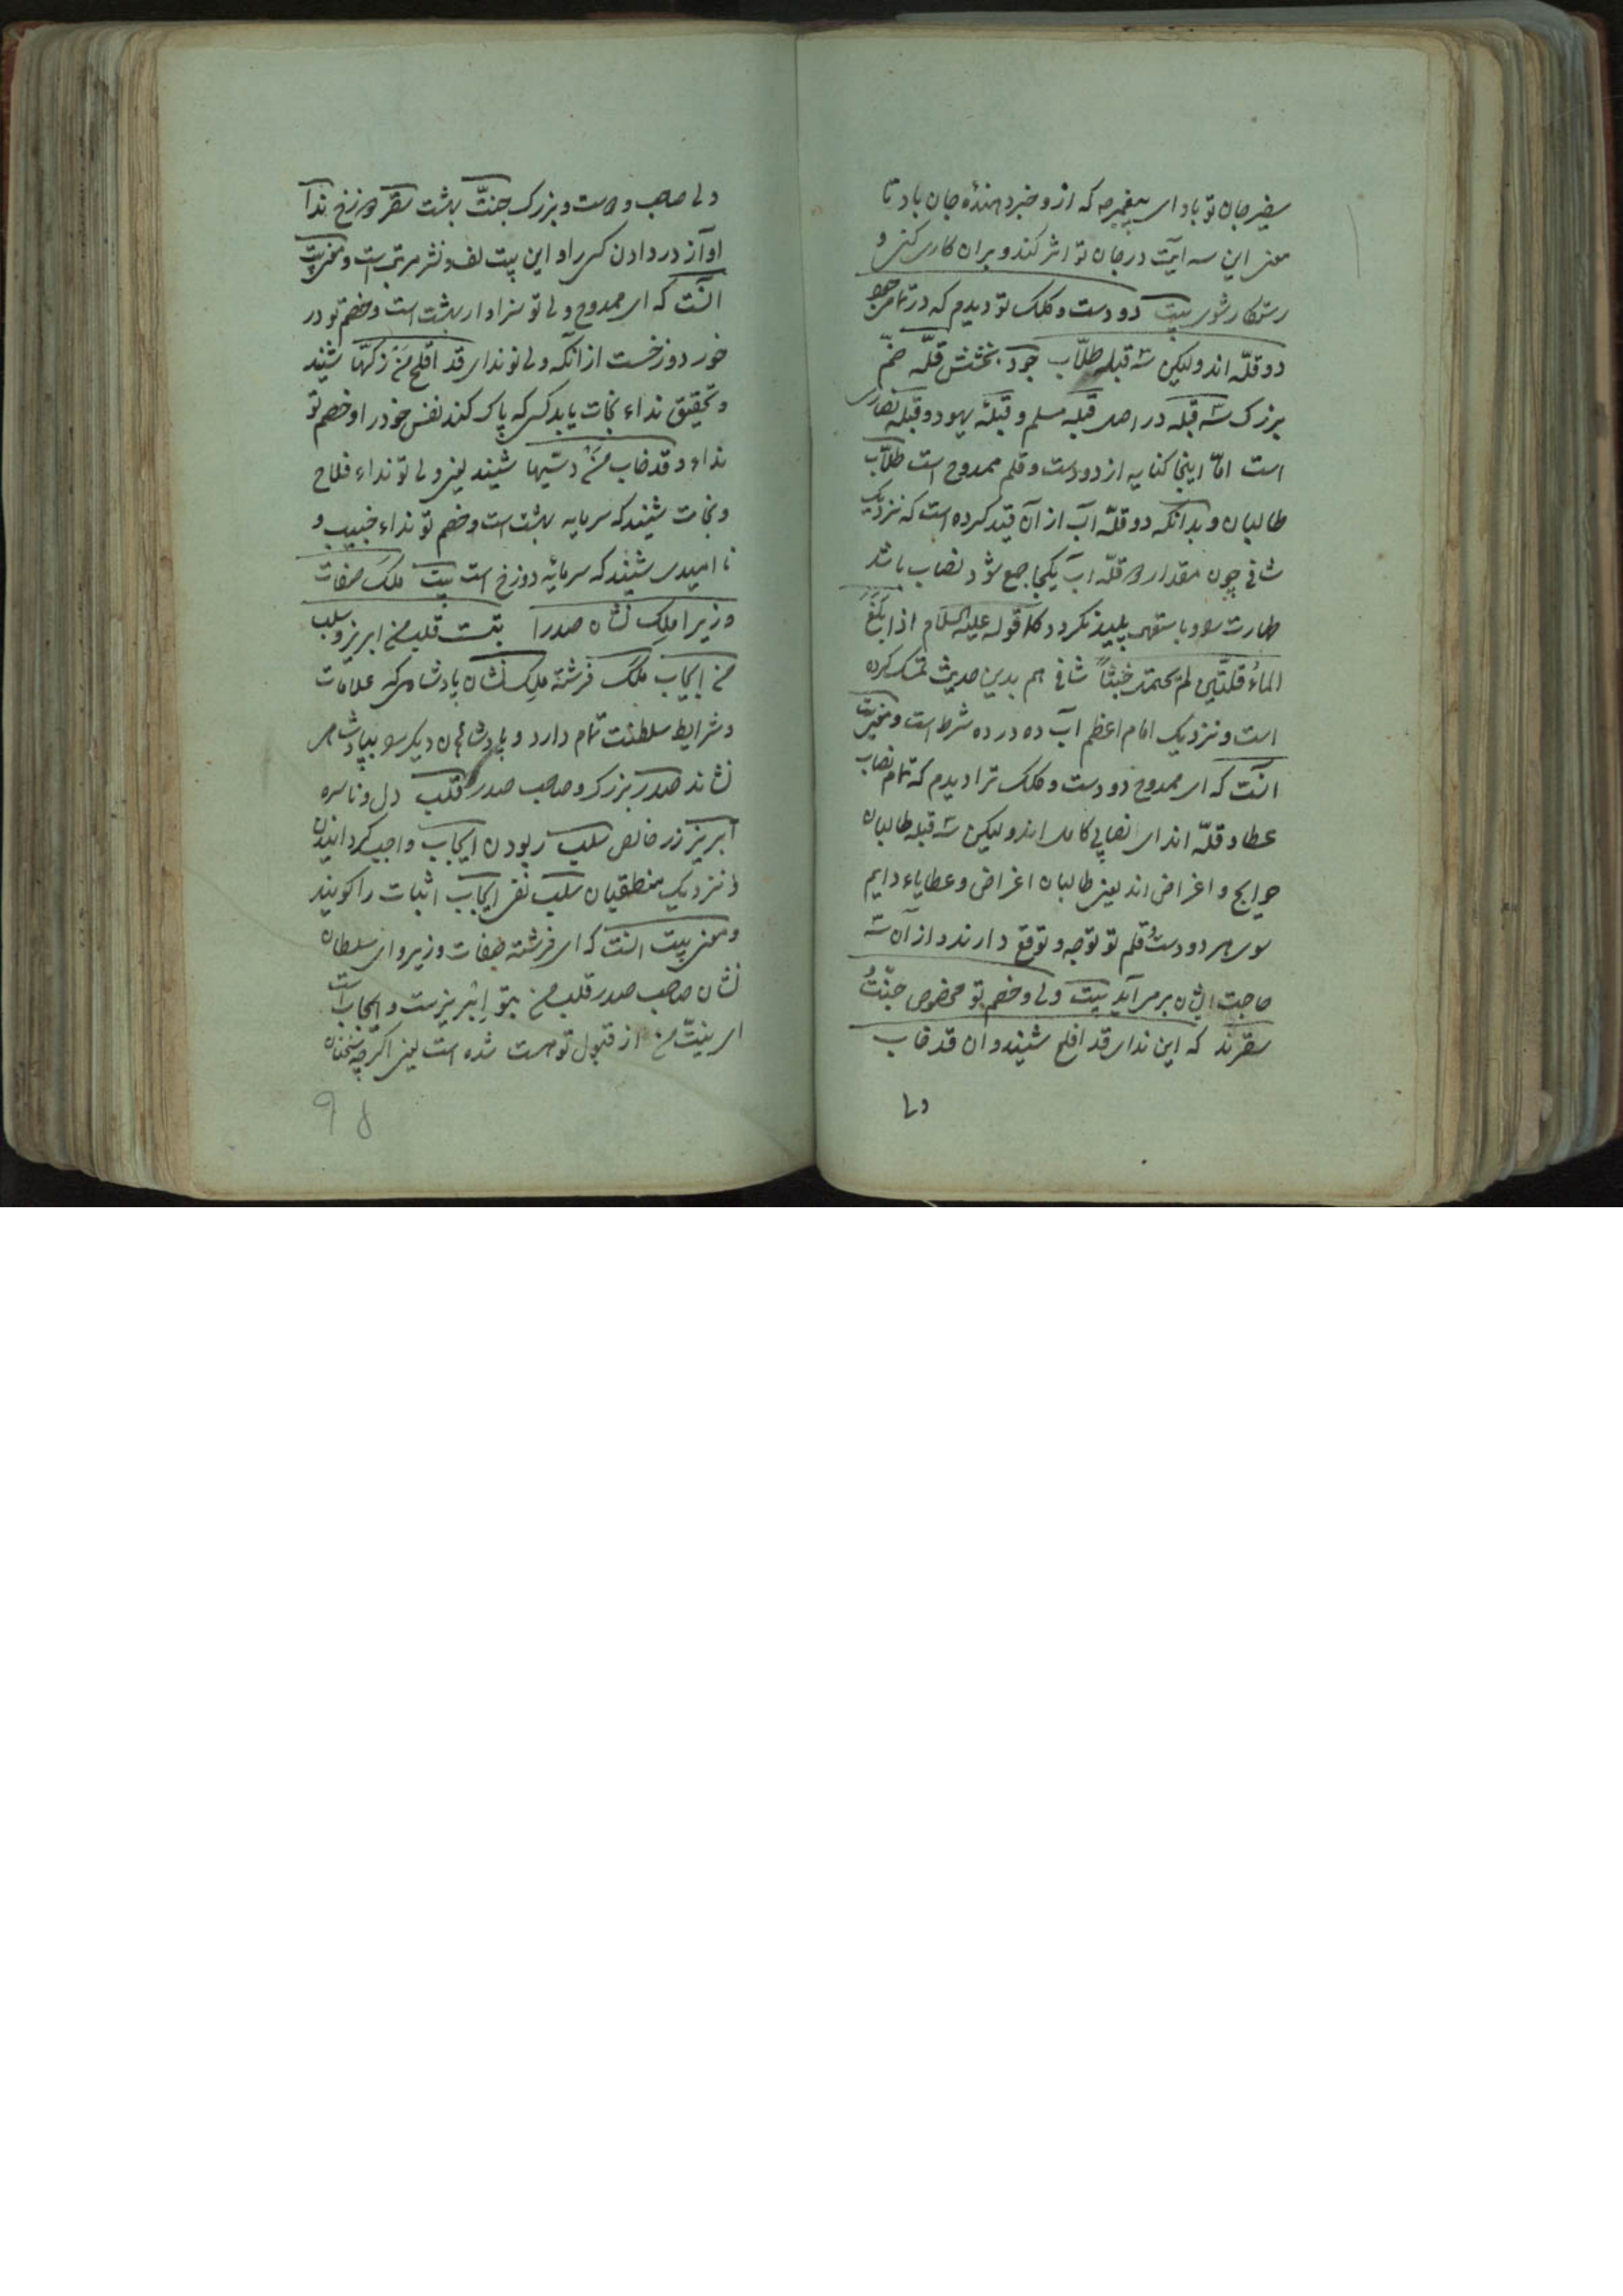 سفیر جان تو باد ای پیغمبر چه که ازو خبر دهندۀ جان باد تا
معنی این سه آیت در جان تو اثر کند و بران کاری کنی و
رستکار شوی بیت دو دست و کلک تو دیدم که در تمامی جود
دو قلّه اند ولیکن سه قبلۀ طلّاب جود بخشش قلّه خمّ
بزرک سه قبله در اصل قبلۀ مسلم و قبلۀ یهود و قبلۀ نصاری
است امّا اینجا کنایه از دو دست و قلم ممدوح است طلّاب
طالبان و بدانکه دو قلّه آب از آن قید کرده است که نزدیک
شافی چون مقدار دو قلّه آب یکجا جمع شود نصاب باشد
طهارت را و باستعمال پلید نکردد کما قوله علیه السلام اذا بلغ
الماءُ قلّتین لم یحتمل خبثاً شافی هم بدین حدیث تمسک کرده
است و نزدیک امام اعظم آب ده در ده شرط است و معنی بیت
آنست که ای ممدوح دو دست و کلک ترا دیدم که تمام نصاب
عطا دو قلّه اند ای نصابی کامل اند ولیکن سه قبله طالبان
حوایج و اغراض اند یعنی طالبان اغراض و عطایاء دایم
سوی هر دو دست و قلم تو توجه و توقع دارند و از آن سه
حاجت ایشان بر می آید بیت ولی و خصم تو مخصوص جنّت و
سقرند که این ندای قد افلح شنید و ان قد خاب
ولی
ولی صاحب و دوست و بزرک جنّت بهشت سقر دوزخ ندا
آواز در دادن کسی را و این بیت لف و نشر مرتب است و معنی بیت
آنست که ای ممدوح ولی تو سزاوار بهشت است و خصم تو در
خور دوزخست از آنکه ولی تو ندای قد افلح من زکّها شنید
و تحقیق نداء نجات یابد کسی که پاک کند نفس خود را و خصم تو
نداء و قد خاب من دسّیها شنید یعنی ولی تو نداء فلاح
و نجات شنید که سرمایه بهشت است و خصم تو نداء خیبت و
نا امیدی شنید که سرمایۀ دوزخ است بیت ملک صفات
وزیرا ملک نشان صدرا بتست قلب من ابریز و سلب
من ایجاب ملک فرشته ملک نشان پادشاهی که علامات
و شرایط سلطنت تمام دارد و پادشاهان دیکر را بپادشاهی
نشاند صدر بزرک و صاحب صدر قلب دل و ناسره
ابریز زر خالص سلب ربودن ایجاب واجب کردانیدن
و نزدیک منطقیان سلب نفی ایجاب اثبات را کویند
و معنی بیت آنست که ای فرشته صفات وزیر و ای سلطان
نشان صاحب صدر قلب من بتو ابریزست و ایجابست
ای نیت من از قبول تو هست شده است یعنی اکرچه سخنان
۹۵